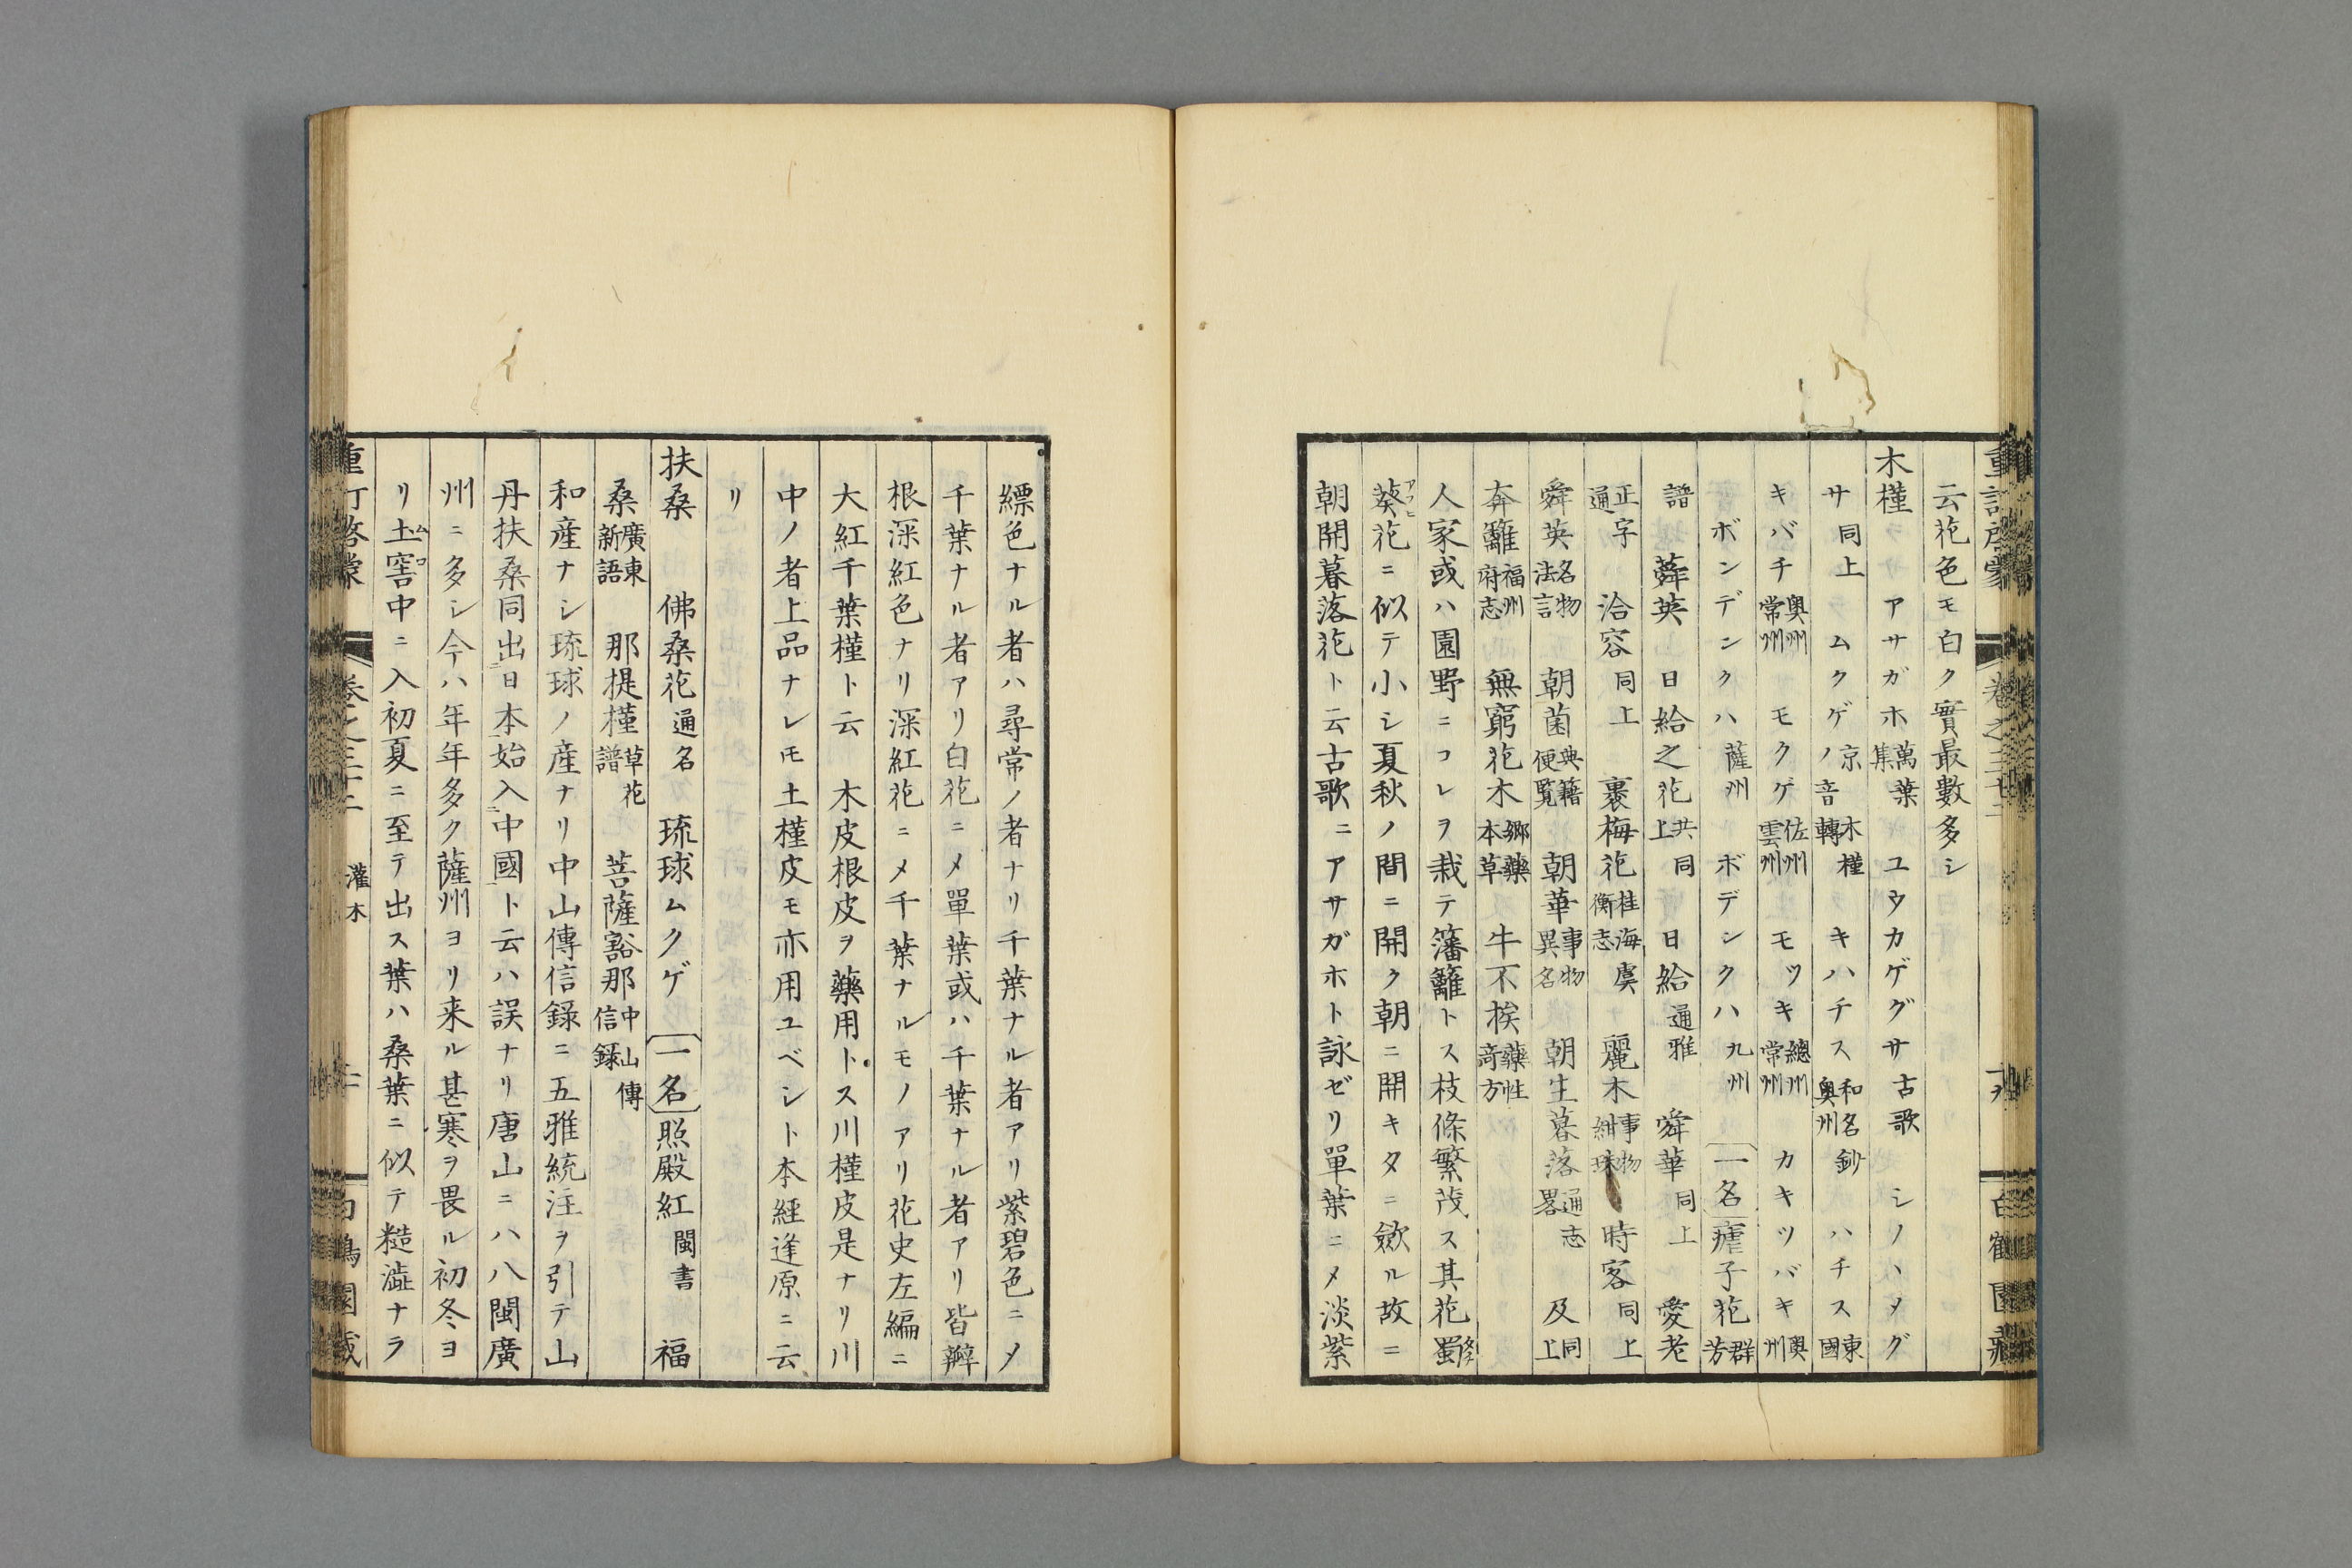 云花色モ白ク實最數多シ
木槿 アサガホ萬葉集 ユウカゲグサ古歌 シノハメグ
サ同上 ムクゲ京ノ音轉木槿 キハチス和名鈔奥州 ハチス東國
キバチ奥州常州 モクゲ佐州雲州 モツキ總州常州 カキツバキ奥州
ボンデンクハ薩州 ボデシクハ九州 一名瘧子花群芳
譜 蕣英 日給之花共同上 日給通雅 舜華同上 愛老
正字通 洽容同上 裹梅花桂海虞衡志 麗木事物紺珠 時客同上
舜英名物法言 朝菌典籍便覧 朝華事物異名 朝生暮落通志畧 及同上
奔籬福州府志 無窮花木郷藥本草 牛不挨藥性竒方
人家或ハ園野ニコレヲ栽テ籓籬トス枝條繁茂ス其花蜀
葵アフヒ花ニ似テ小シ夏秋ノ間ニ開ク朝ニ開キタニ歛ル故ニ
朝開暮落花ト云古歌ニアサガホト詠ゼリ單葉ニメ淡紫
縹色ナル者ハ尋常ノ者ナリ千葉ナル者アリ紫碧色ニメ
千葉ナル者アリ白花ニメ單葉或ハ千葉ナル者アリ皆辧
根深紅色ナリ深紅花ニメ千葉ナルモノアリ花史左編ニ
大紅千葉槿ト云 木皮根皮ヲ藥用トス川槿皮是ナリ川
中ノ者上品ナレモ土槿皮モ亦用ユベシト本経逢原ニ云
リ
扶桑 佛桑花通名 琉球ムクゲ 一名照殿紅閩書 福
桑廣東新語 那提槿草花譜 菩薩豁那中山傳信録
和産ナシ琉球ノ産ナリ中山傳信錄ニ五雅統注ヲ引テ山
丹扶桑同出日本始入中國ト云ハ誤ナリ唐山ニハ八閩廣
州ニ多シ今ハ年年多ク薩州ヨリ来ル甚寒ヲ畏ル初冬ヨ
リ土窖ムロ中ニ入初夏ニ至テ出ス葉ハ桑葉ニ似テ糙澁ナラ
灌木